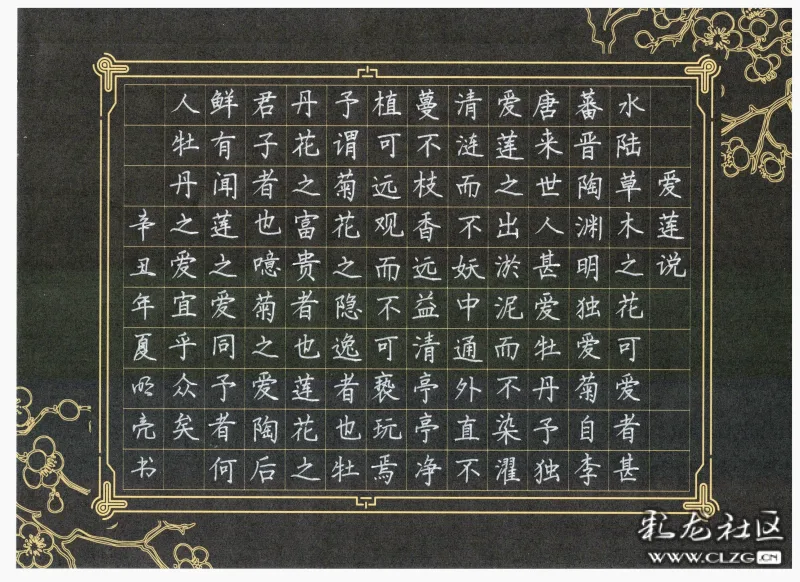 爱莲说
水陆草木之花可爱者甚
蕃晋陶渊明独爱菊自李
唐来世人甚爱牡丹予独
爱莲之出淤泥而不染濯
清涟而不妖中通外直不
蔓不枝香远益清亭亭净
植可远观而不可亵玩焉
予谓菊花之隐逸者也牡
丹花之富贵者也莲花之
君子者也噫菊之爱陶后
鲜有闻莲之爱同予者何
人牡丹之爱宜乎众矣
辛丑年夏明亮书
彩龙社区
WWW.CLZG.CN